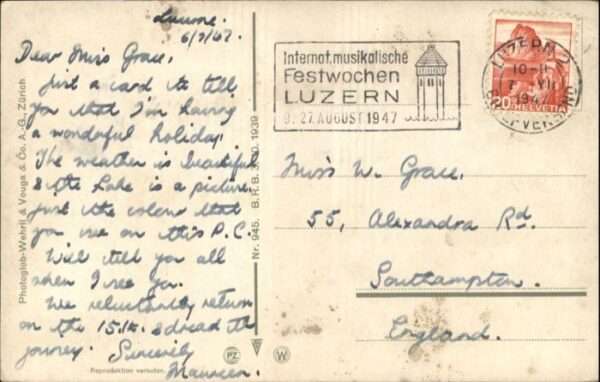 Lucerne.
6/7/47.
Dear Miss Grace,
Just a card to tell
you that I'm having
a wonderful holiday.
The weather is beautiful
& the Lake is a picture,
just the colour that
you see on this P.C.
Will tell you all
when I see you.
We reluctantly return
on the 15th. & dread the
journey. Sincerely
Maureen.
Photoglob-Wehrli & Vouga & Co. A.-G., Zürich
Reproduktion verboten.
Nr. 945. B.R.B. 1939
PZ
W
Internat. musikalische
Festwochen
LUZERN
9.-27. AUGUST 1947
LUZERN 2
10-11
7. VII
1947
BRIEFVERSAND
20 HELVETIA
Miss W. Grace,
55, Alexandra Rd.
Southampton.
England.